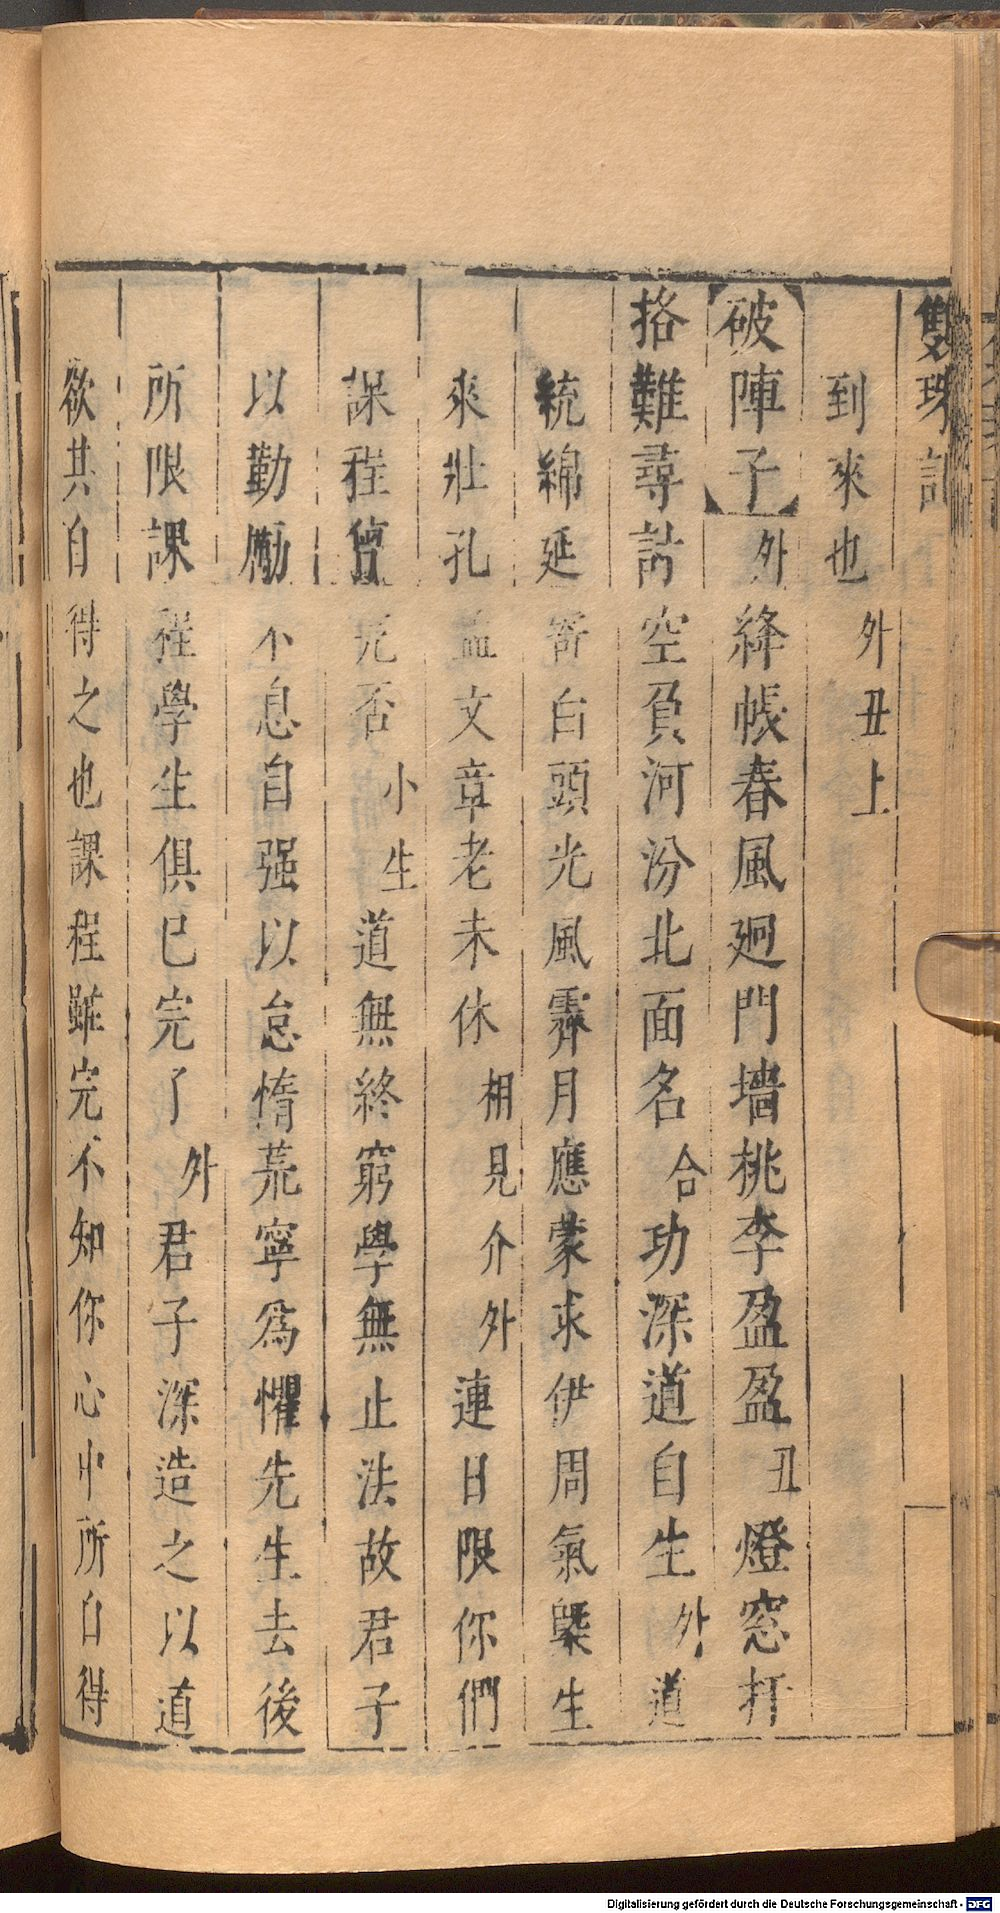 雙珠記
到來也 外丑上
破陣子 外 絳帳春風廻門墻桃李盈盈 丑 燈窓打
捛難尋訪空負河汾北面名 合 功深道自生 外 道
統綿延寄白頭光風霽月應蒙求伊周氣槩生
來壯孔孟文章老未休 相見介外 連日限你們
課程曾完否 小生 道無終窮學無止法故君子
以勤勵不息自强以怠惰荒寧爲懼先生去後
所限課程學生俱已完了 外 君子深造之以道
欲其自得之也課程雖完不知你心中所自得
Digitalisierung gefördert durch die Deutsche Forschungsgemeinschaft - DFG